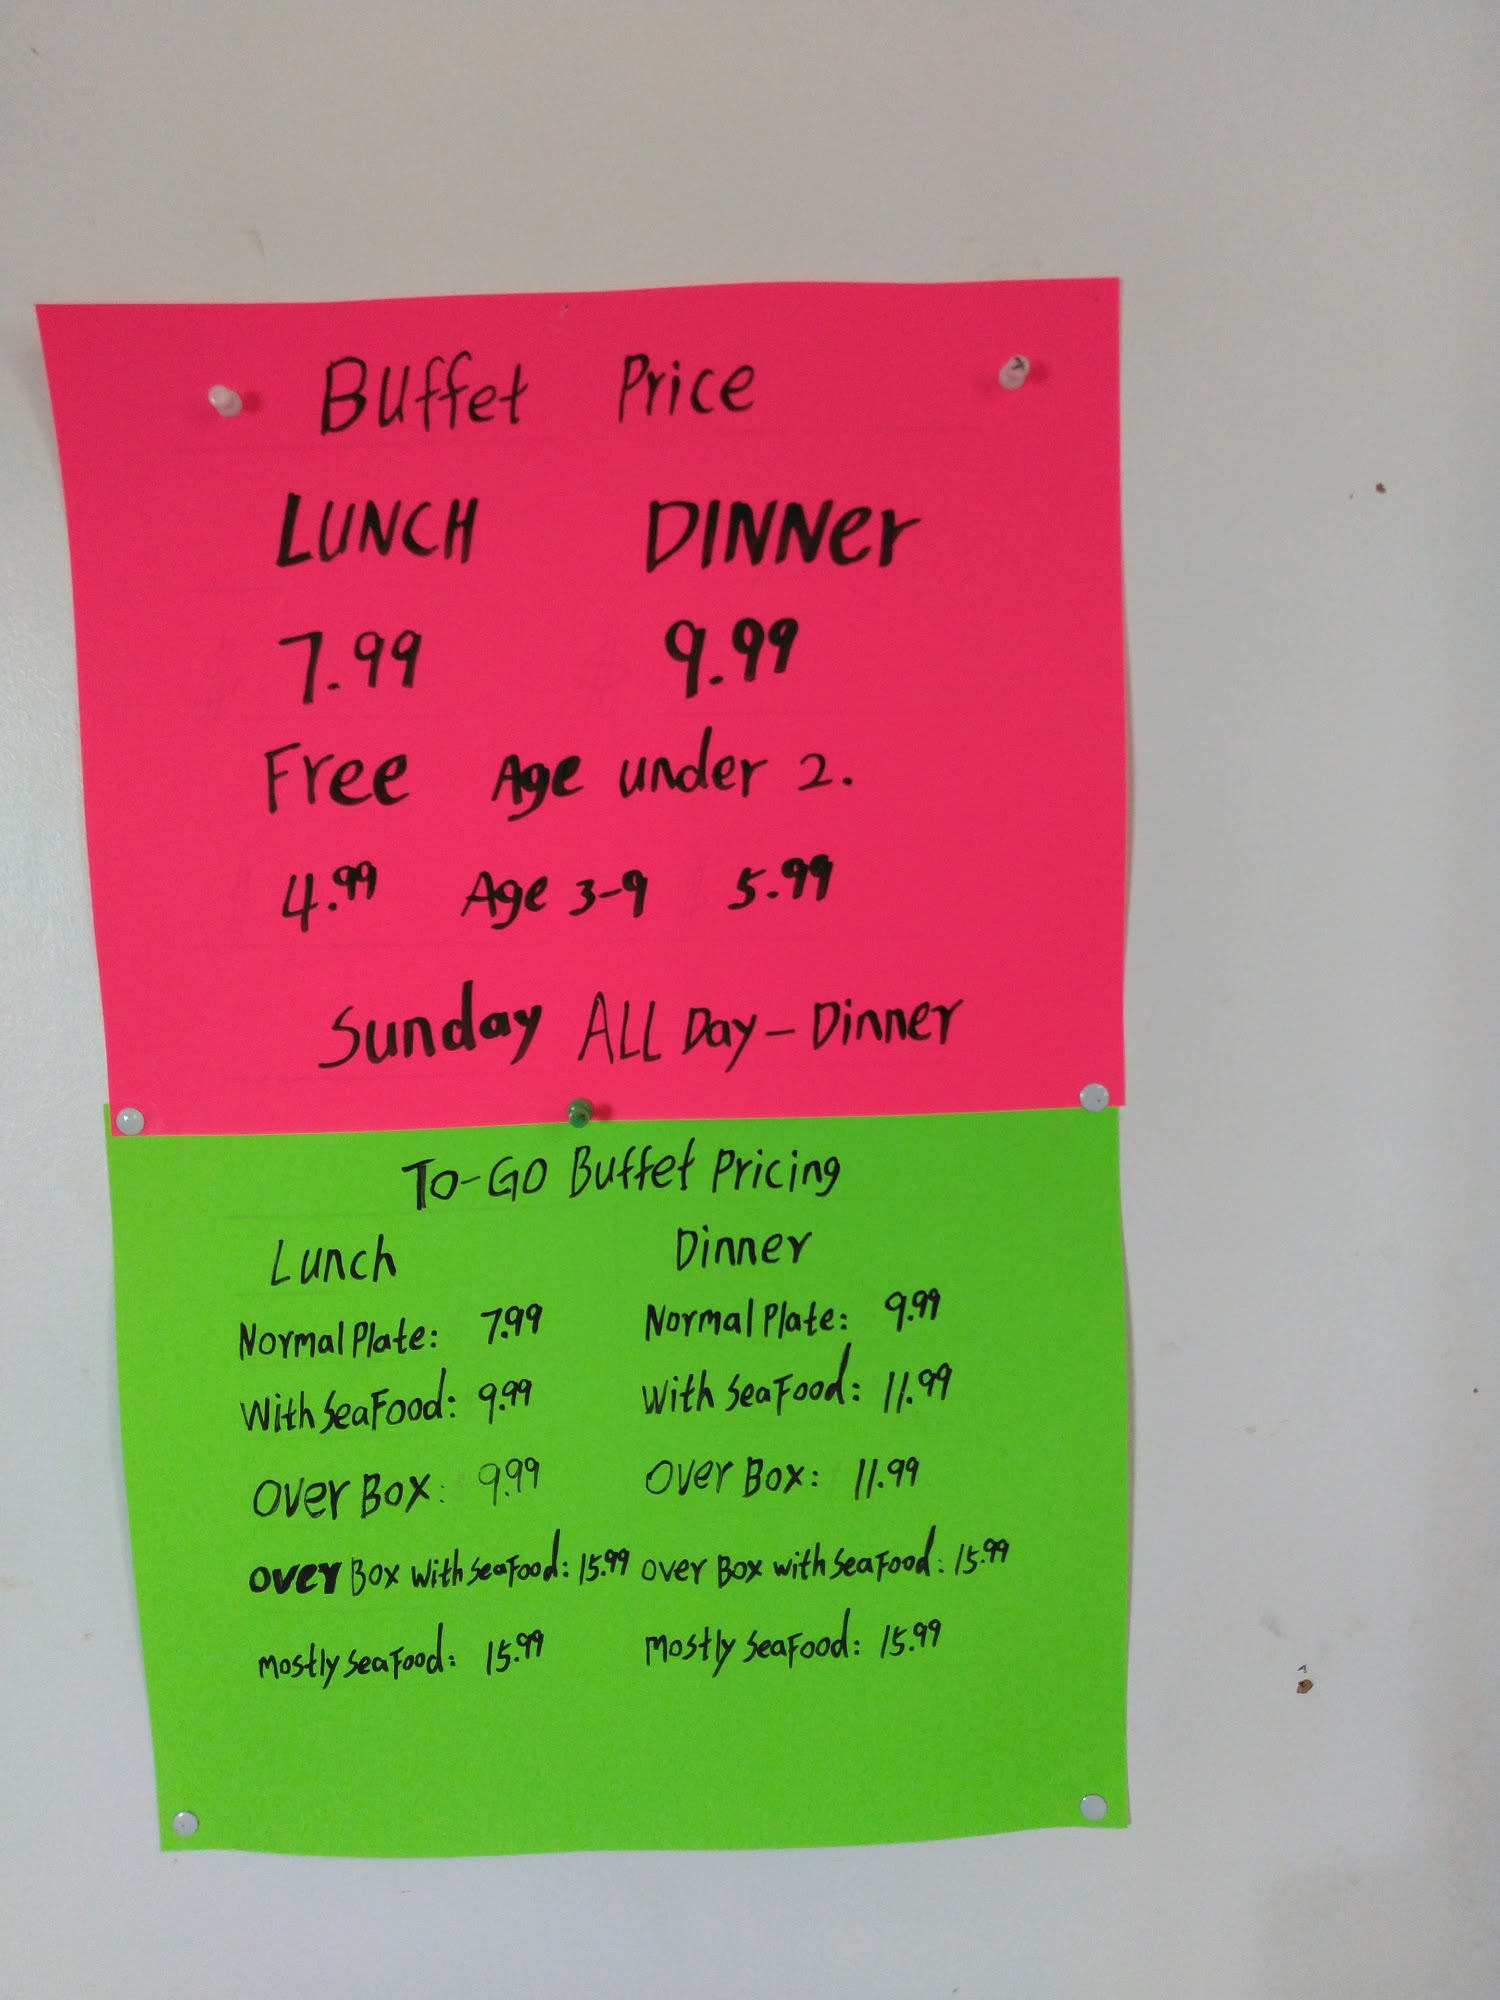 Buffet Price
LUNCH DINNer
7.99 9.99
Free Age under 2.
4.99 Age 3-9 5.99
Sunday ALL Day - Dinner
To-GO Buffet Pricing
Lunch Dinner
Normal Plate: 7.99 Normal Plate: 9.99
With SeaFood: 9.99 With SeaFood: 11.99
Over Box: 9.99 Over Box: 11.99
over Box with SeaFood: 15.99 over Box with SeaFood: 15.99
Mostly SeaFood: 15.99 Mostly SeaFood: 15.99